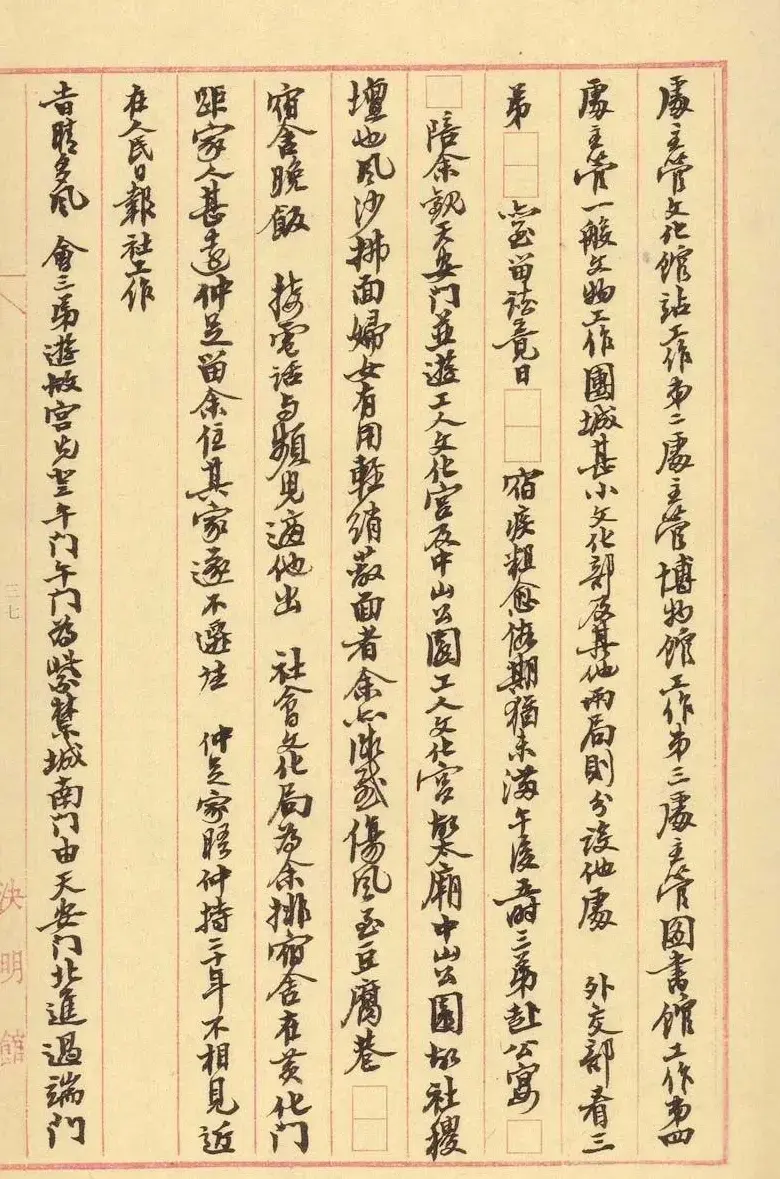 處主管文化館站工作第二處主管博物館工作第三處主管圖書館工作第四
處主管一般文物工作團城甚小文化部及其他兩局則分設他處 外交部看三
弟 留談竟日 宿疾粗愈假期猶未滿午後五時三弟赴公宴
陪余觀天安门並遊工人文化宮及中山公園工人文化宮故太廟中山公園故社稷
壇也風沙拂面婦女有用輕綃蔽面者余亦微感傷風至豆腐巷
宿舍晚飯 接電話与頻見適他出 社會文化局為余排宿舍在黃化门
距家人甚遠仲足留余住其家遂不遷往 仲足家晤仲持二十年不相見近
在人民日報社工作
昔晴多風 會三弟遊故宮先登午门午门為紫禁城南门由天安门北進過端门
三七
決明館